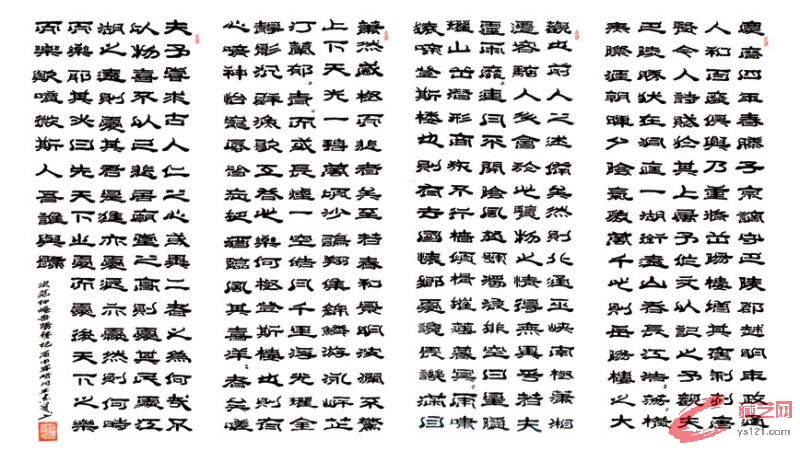 慶曆四年春滕子京謫守巴陵郡越明年政通
人和百廢俱興乃重修岳陽樓增其舊制刻唐
賢今人詩賦於其上屬予作文以記之予觀夫
巴陵勝狀在洞庭一湖銜遠山吞長江浩浩蕩蕩橫
無際涯朝暉夕陰氣象萬千此則岳陽樓之大
觀也前人之述備矣然則北通巫峽南極瀟湘
遷客騷人多會於此覽物之情得無異乎若夫
霪雨霏霏連月不開陰風怒號濁浪排空日星隱
曜山岳潛形商旅不行檣傾楫摧薄暮冥冥虎嘯
猿啼登斯樓也則有去國懷鄉憂讒畏譏滿目
蕭然感極而悲者矣至若春和景明波瀾不驚
上下天光一碧萬頃沙鷗翔集錦鱗游泳岸芷
汀蘭郁郁青青而或長煙一空皓月千里浮光耀金
靜影沉璧漁歌互答此樂何極登斯樓也則有
心曠神怡寵辱皆忘把酒臨風其喜洋洋者矣嗟
夫予嘗求古人仁人之心或異二者之為何哉不
以物喜不以己悲居廟堂之高則憂其民處江
湖之遠則憂其君是進亦憂退亦憂然則何時
而樂耶其必曰先天下之憂而憂後天下之樂
而樂歟噫微斯人吾誰與歸
宋范仲淹岳陽樓記
藏艺网
ys121.com